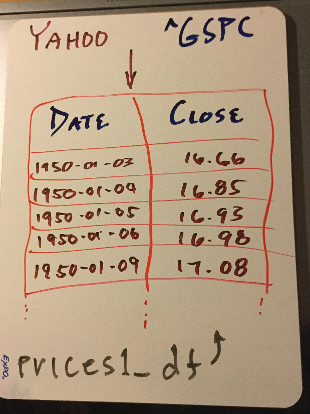 YAHOO ^GSPC
DATE CLOSE
1950-01-03 16.66
1950-01-04 16.85
1950-01-05 16.93
1950-01-06 16.98
1950-01-09 17.08
prices1_df
EXPO